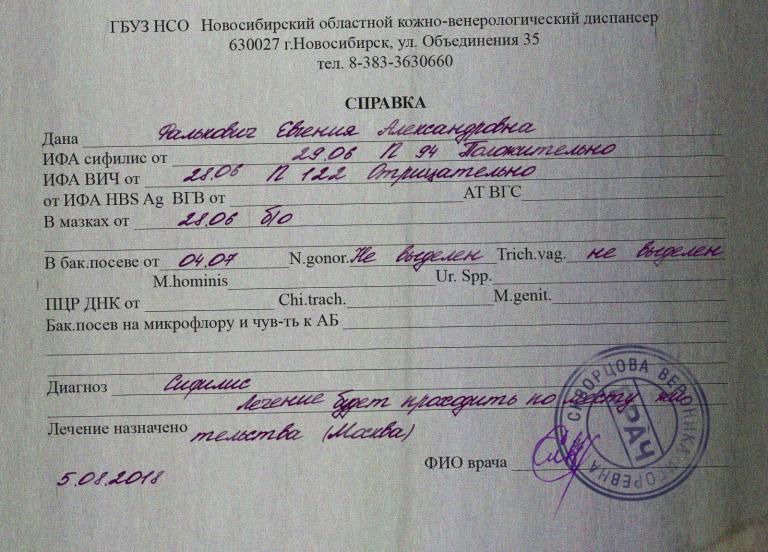 ГБУЗ НСО Новосибирский областной кожно-венерологический диспансер
630027 г.Новосибирск, ул. Объединения 35
тел. 8-383-3630660
СПРАВКА
Дана Фалькович Евгения Александровна
ИФА сифилис от 29.06 П 94 Положительно
ИФА ВИЧ от 28.06 П 122 Отрицательно
от ИФА HBS Ag ВГВ от АТ ВГС
В мазках от 28.06 б/о
В бак.посеве от 04.07 N.gonor. Не выделен Trich.vag. не выделен
M.hominis Ur. Spp.
ПЦР ДНК от Chi.trach. M.genit.
Бак.посев на микрофлору и чув-ть к АБ
Диагноз Сифилис
Лечение будет проходить по месту жи
Лечение назначено тельства (Москва)
ФИО врача
5.08.2018
СКВОРЦОВА ВЕРОНИКА ИГОРЕВНА
ВРАЧ